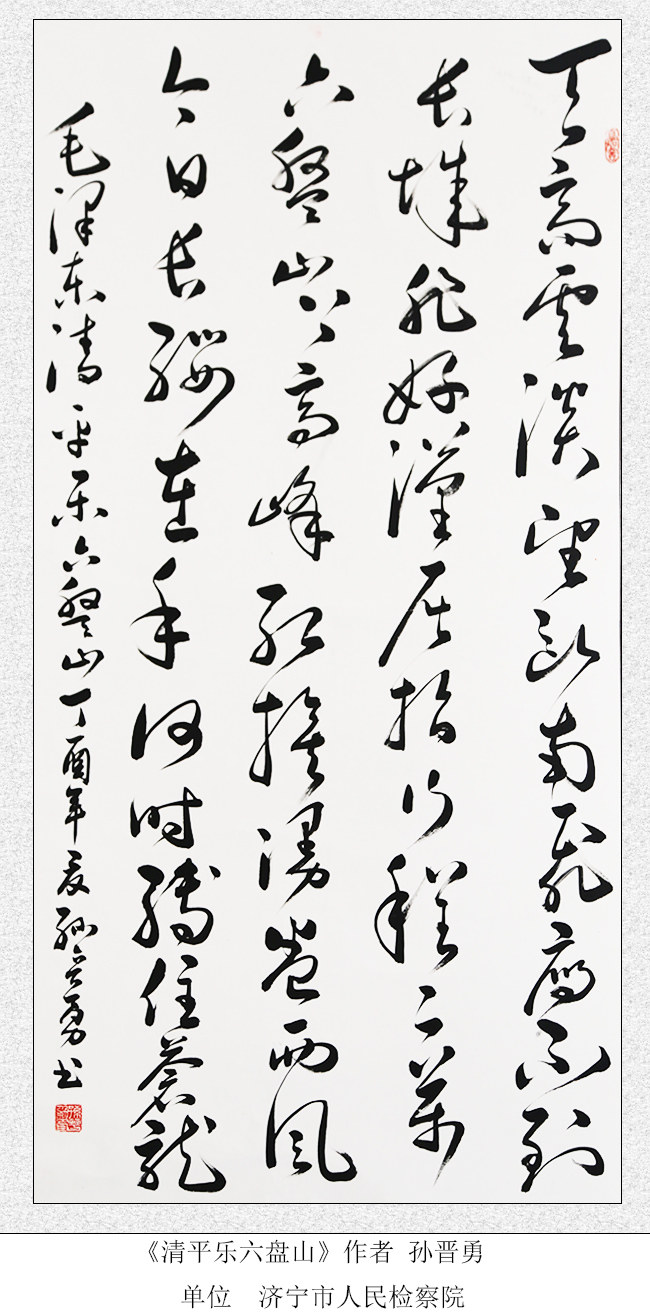 天高雲淡望断南飛雁不到
长城非好漢屈指行程二萬
六盤山上高峰红旗漫卷西风
今日长缨在手何时缚住蒼龍
毛泽东清平乐六盤山丁酉年夏孙晋勇书
《清平乐六盘山》作者 孙晋勇
单位 济宁市人民检察院